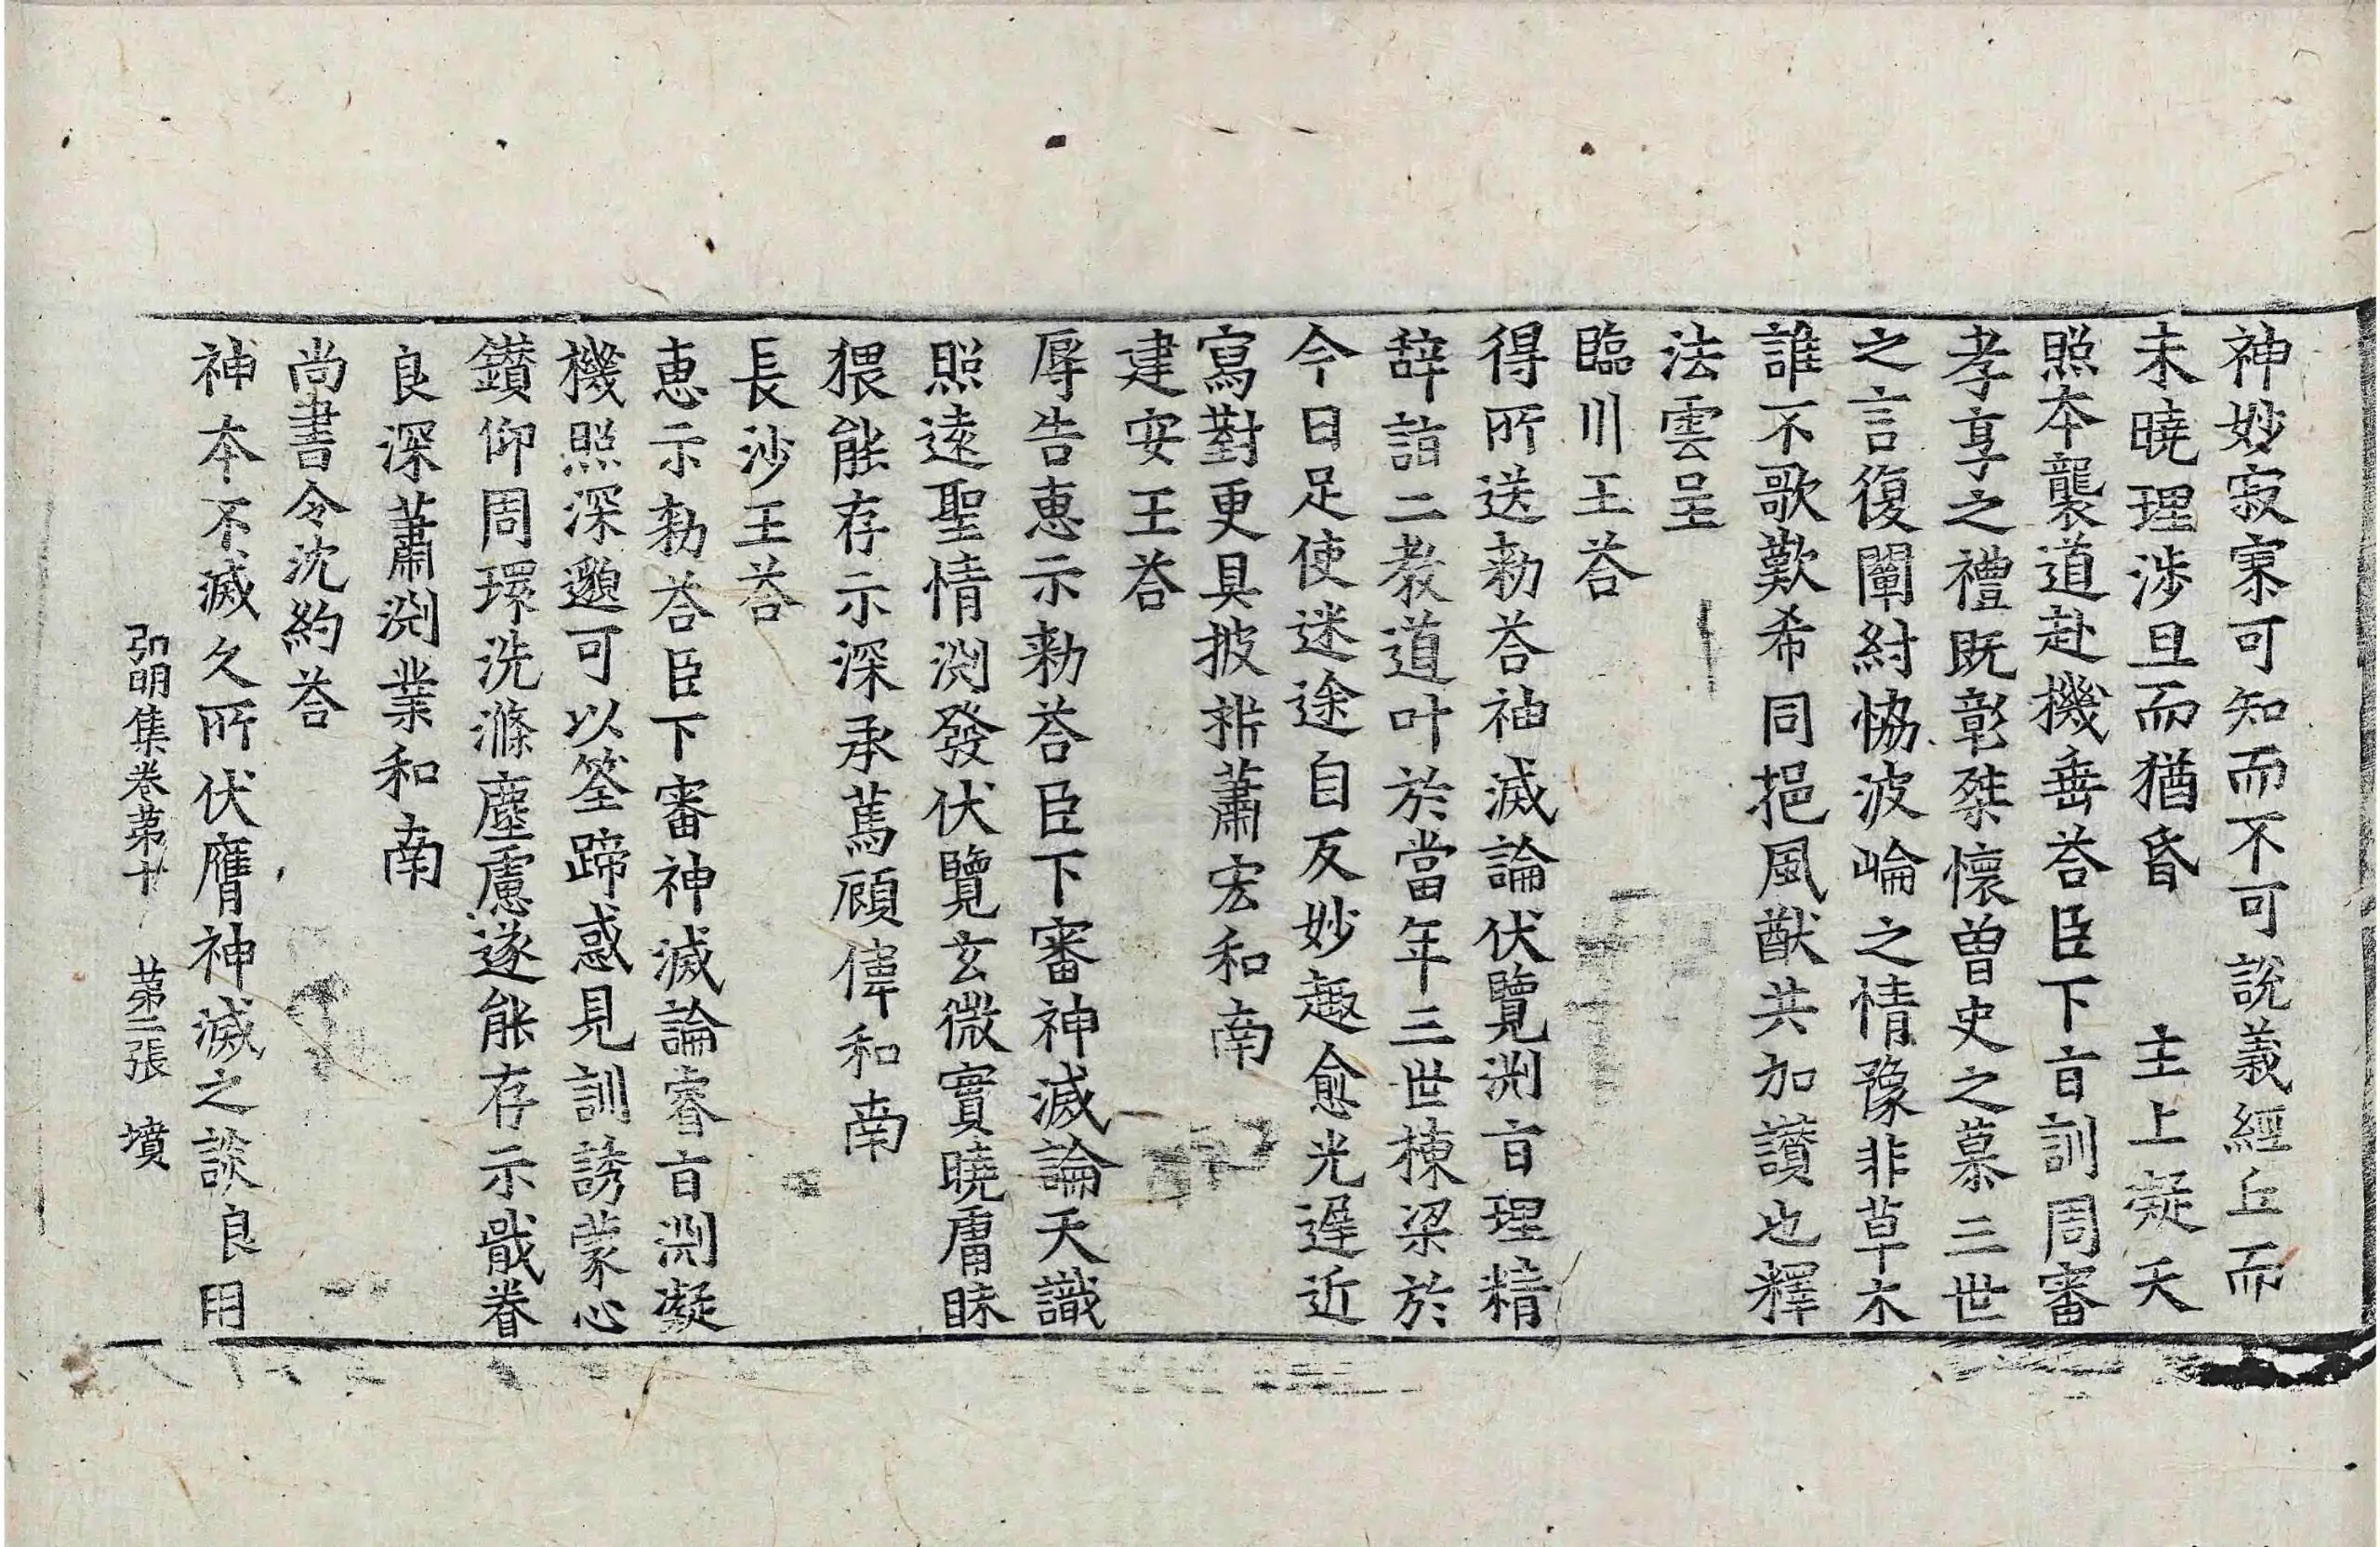 神妙寂寥可知而不可說義經丘而
未曉理涉旦而猶昏　主上凝天
照本襲道赴機垂荅臣下旨訓周審
孝享之禮既彰桀懷曾史之慕三世
之言復闡紂協波崘之情豫非草木
誰不歌歎希同挹風猷共加讃也釋
法雲呈
臨川王荅
得所送勑荅神滅論伏覽渕旨理精
辞詣二教道叶於當年三世棟梁於
今日足使迷途自反妙趣愈光遅近
寫對更具披析蕭宏和南
建安王荅
辱告惠示勑荅臣下審神滅論天識
照逺聖情渕發伏覽玄微實曉庸昧
猥能存示深承篤顧偉和南
長沙王荅
惠示勑荅臣下審神滅論睿旨渕凝
機照深邈可以筌蹄惑見訓誘蒙心
鑚仰周環洗滌塵慮遂能存示戢眷
良深蕭渕業和南
尚書令沈約荅
神本不滅久所伏膺神滅之談良用
弘明集卷苐十　苐二張　墳